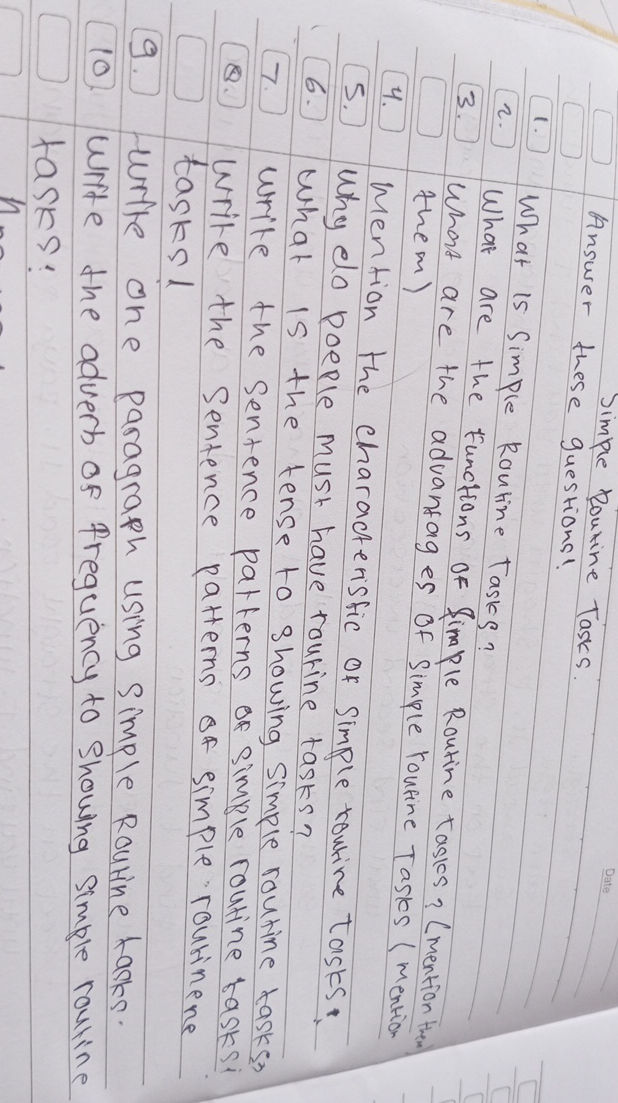 Simple Routine Tasks.
Date
Answer these questions!
1. What is Simple Routine Tasks?
2. What are the functions of Simple Routine tasks? (mention them)
3. What are the advantages of Simple routine Tasks (mention
them)
4. Mention the characteristic of simple routine tasks!
5. Why do poeple must have routine tasks?
6. What is the tense to showing simple routine tasks?
7. Write the sentence patterns of simple routine tasks!
8. Write the sentence patterns of simple routinene
tasks!
9. Write one paragraph using simple Routine tasks.
10. Write the adverb of frequency to showing simple routine
tasks!